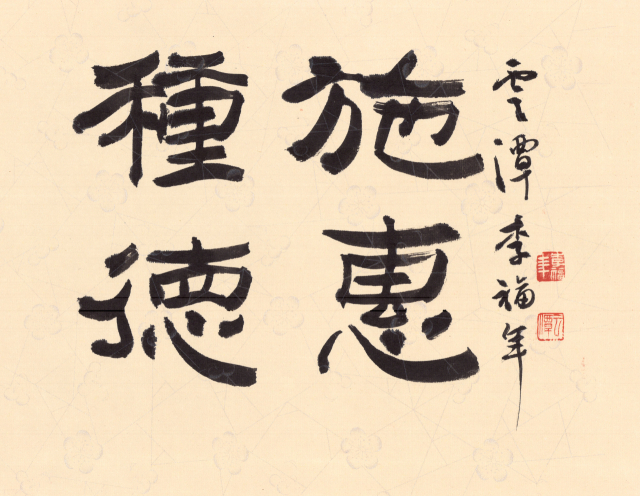 雲潭李福年
施惠
種德